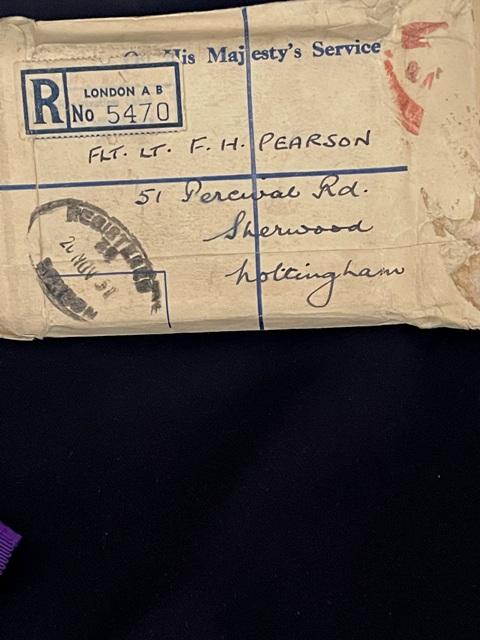 His Majesty's Service
R
LONDON A B
No 5470
FLT. LT. F. H. PEARSON
51 Percival Rd.
Sherwood
Nottingham
REGISTERED
NOV
LONDON